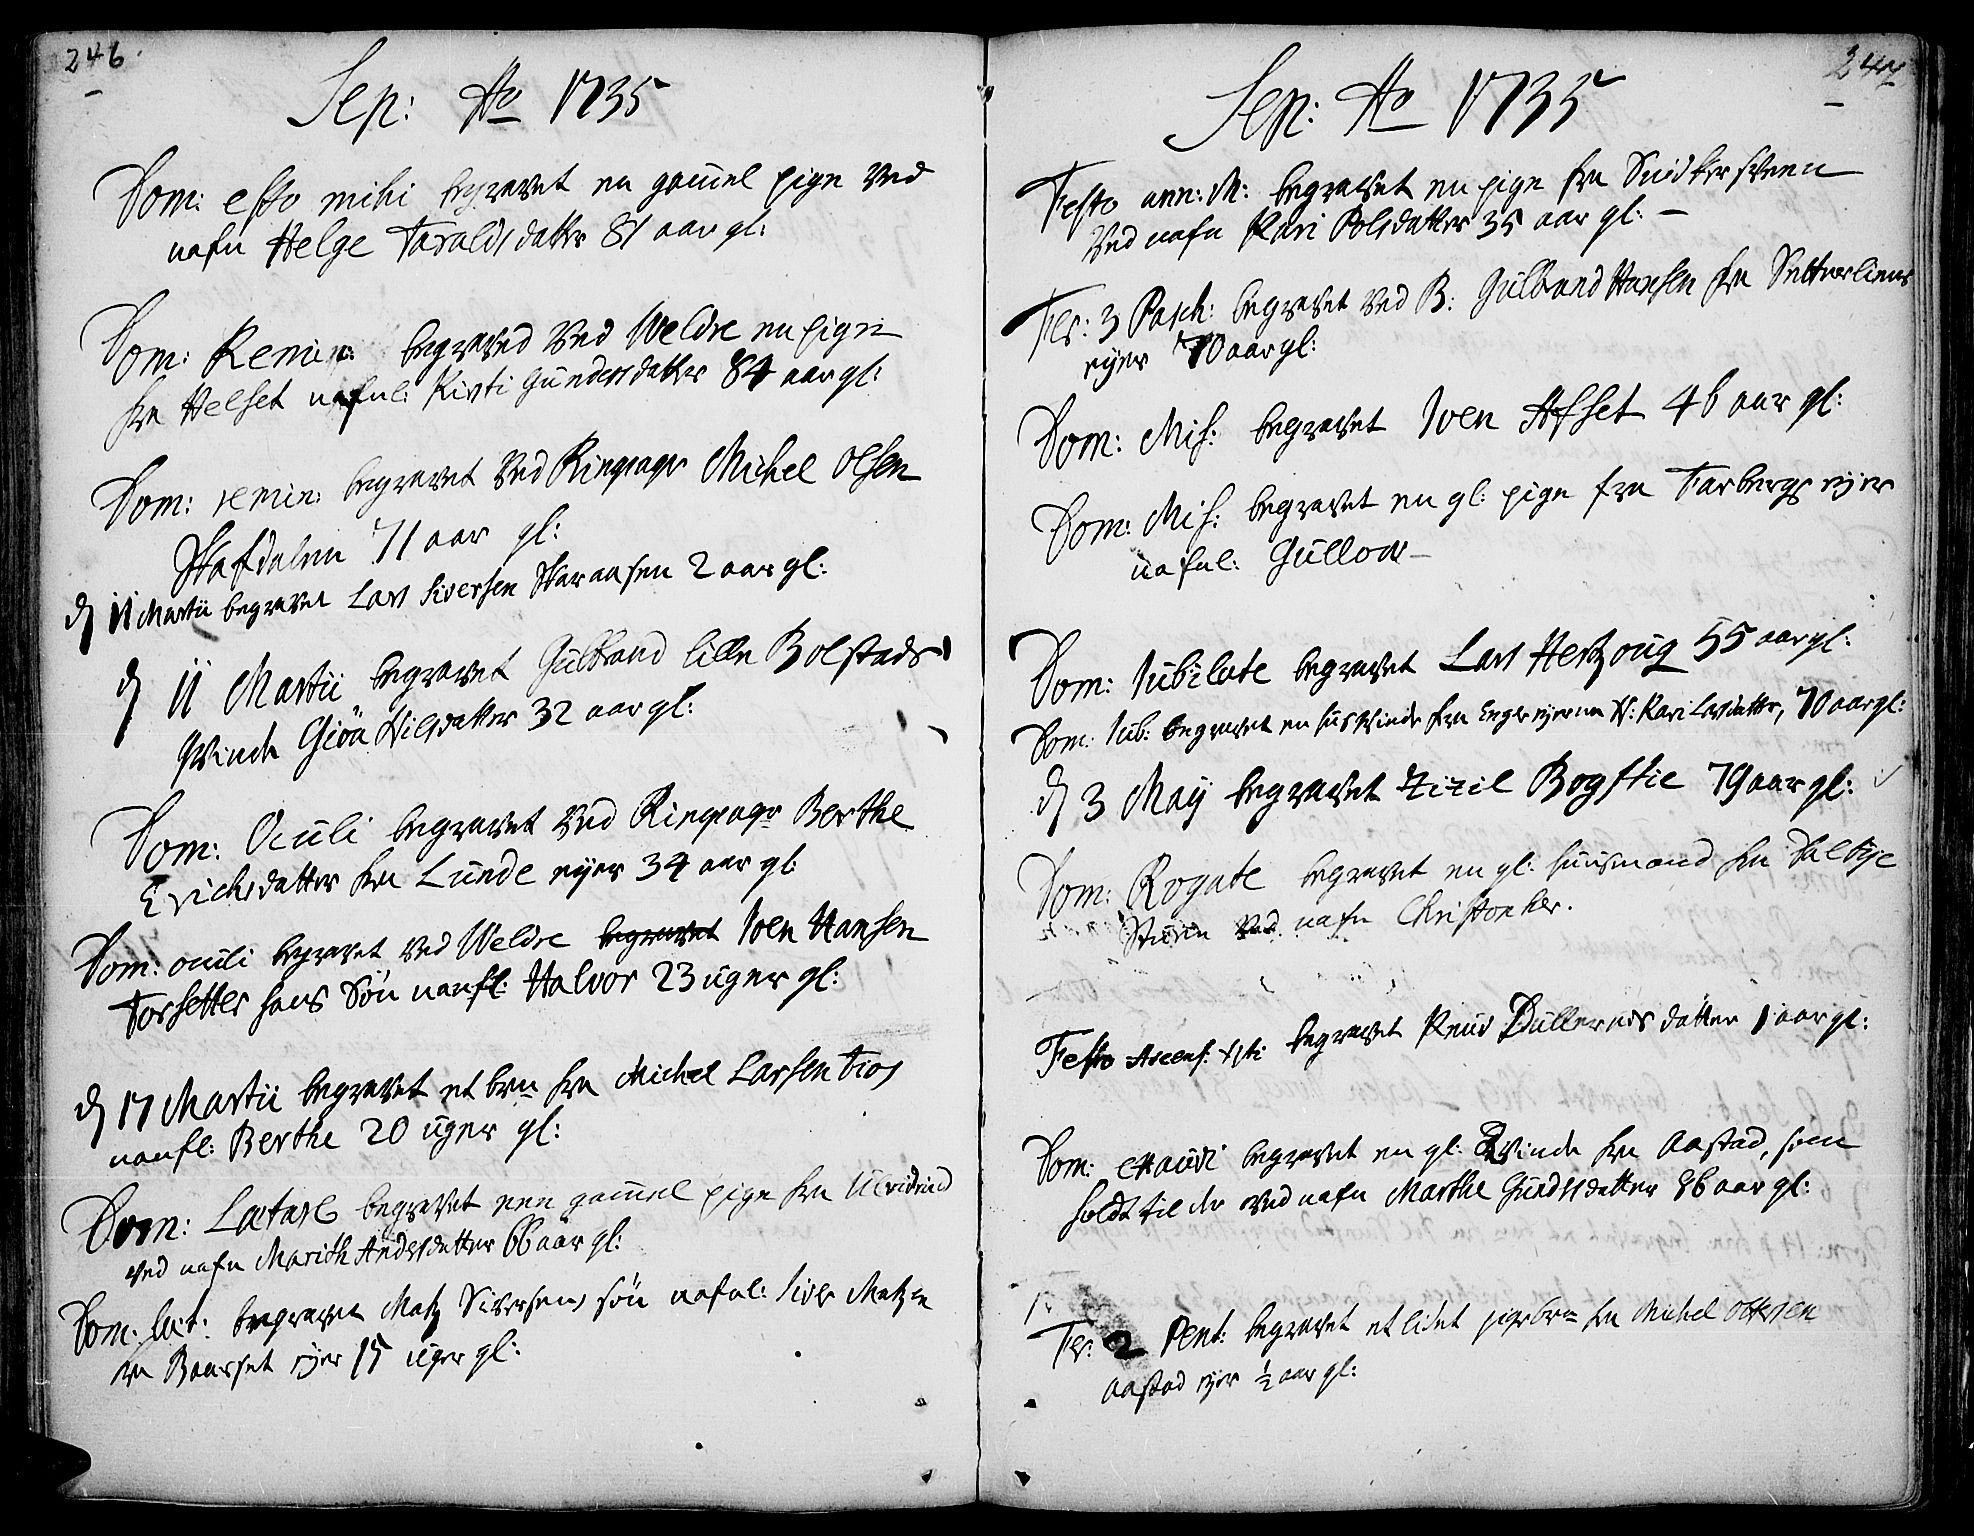 246.
Sep: Ao 1735
Dom: esto mihi begravet en gam̄el pige ved
nafn Helge Taraldsdatter 81 aar gl:
Dom: Remin: begraved ved Weldre en pige
fra Helset nafnl: Kirsti Gundersdatter 84 aar gl:
Dom: remin: begravet ved Ringsager Michel Olsen
Skafdalen 71 aar gl:
d 11 Martii begravet Lars Siversen Skaraasen 2 aar gl:
d 11 Martii begravet Gulbrand lille Bolstads
qvinde Giøa Nilsdatter 32 aar gl:
Dom: Oculi begravet ved Ringsager Berthe
Erichsdatter fra Lunde eyer 34 aar gl:
Dom: oculi begravet ved Weldre begravet Iven Hansen
Torsetter hans Søn nanfl: Halvor 23 uger gl:
d 17 Martii begravet et brn fra Michel Larsen
nanfl: Berthe 20 uger gl:
Dom: Lætare begravet een gam̄el pige fra
ved nafn Marith Andersdatter 66 aar gl:
Dom: Læt: begravet Matz Siversens søn nafnl: Siver Matz
fra Baarset eyer 15 uger gl:
247
Sep: Ao 1735
Festo ann: M: begravet en pige fra Snidkersveen
ved nafn Kari Polsdatter 35 aar gl:
Fer: 3 Pasch: begravet ved B: Gulbrand Hansen fra Setterliens
eyer 70 aar gl:
Dom: Mis: begravet Iven Afset 46 aar gl:
Dom: Mis: begravet en gl: pige fra Farbergs eyer
nafnl: Gullow
Dom: Iubilate begravet Lars Hertzoug 55 aar gl:
Dom: Iub: begravet en husqvinde fra Enger eyerne N: Kari Larsdatter, 70 aar gl:
d 3 May begravet Zizil Bogstie 79 aar gl:
Dom: Rogate begravet en gl: huusmand fra Dalbye
Stuen ved nafn Christopher.
Festo Ascens: Xsti begravet Knud Dulleruds datter 1 aar gl:
Dom: Exaudi begravet en gl: Qvinde fra Aastad, som
holdt til der ved nafn Marthe Gundersdatter 86 aar gl:
Fer: 2 Pent: begravet et lidet pigebrn fra Michel Ottersen
Aastad eyer ½ aar gl: